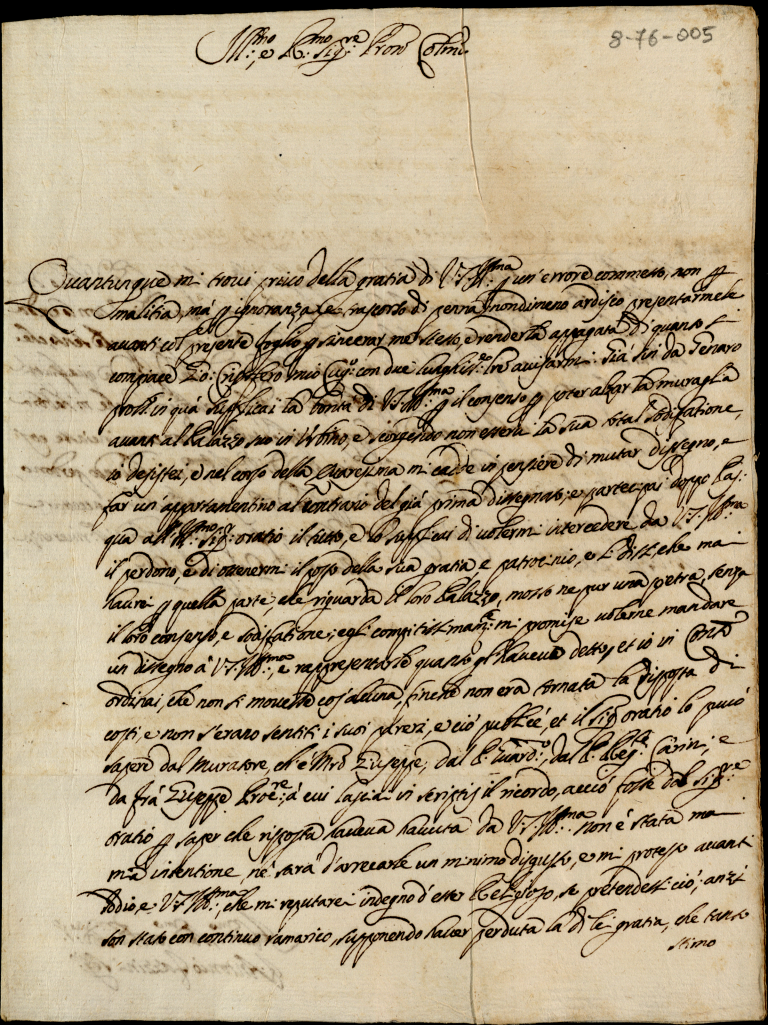 8-76-005
Ill:mo e R:mo Sig:re Pron Colmo
Quantunque mi trovi privo della gratia di V:S:Ill:ma p un' errore commesso, non p
malitia, mà p ignoranza, e trasporto di penna, nondimeno ardisco presentarmele
avanti col presente foglio p sincerar me stesso, e renderla appagata di quanto si
compiace Gio: Cristofero mio Cug:o con due avisarmi. Già sin da Genaro
pross:o in quà supplicai la bontà di V:S:Ill:ma p il consenso p poter alzar la muraglia
avanti al Palazzo suo in Urbino, e scorgendo non esservi la sua total sodisfatione,
io desistei, e nel corso della Quaresima mi cadde in pensiere di mutar dissegno, e
far un' appartamentino al contrario del già prima dissegnato, e partecipai doppo Pas:
qua all' Ill:mo Sig: Oratio il tutto, e lo supplicai di volermi intercedere da V:S:Ill:ma
il perdono, e di ottenermi il posso della sua gratia e patrocinio, e li dissi, che mai
haurei p quella parte, che riguarda il loro Palazzo, mosso ne pur una pietra, senza
il loro consenso, e sodisfatione; egli compitissimam:e mi promise volerne mandare
un dissegno à V:S:Ill:ma, e rappresentarle quanto gl' haveva detto, et io in
ordinai, che non si movesse cos' alcuna, finche non era tornata la risposta di
costì, e non s'erano sentiti i suoi pareri, e ciò publicè, et il Sig: Oratio lo può
sapere dal Muratore, ch' è Mro Giuseppe, dal P. Guard:o, dal P. Carin:, e
da frà Giuseppe à cui lasciai in scriptis il ricordo, acciò fosse dal Sig:re
Oratio p saper che risposta haveva havuta da V:S:Ill:ma. Non è stata mai
mia intentione, nè sarà d'arrecarle un minimo disgusto, e mi protesto avanti
Iddio, e V:S:Ill:ma, che mi reputarei indegno d'esser Religioso, se pretendessi ciò; anzi
son stato con continuo ramarico, supponendo haver perduta la di lei gratia, che tanto
stimo